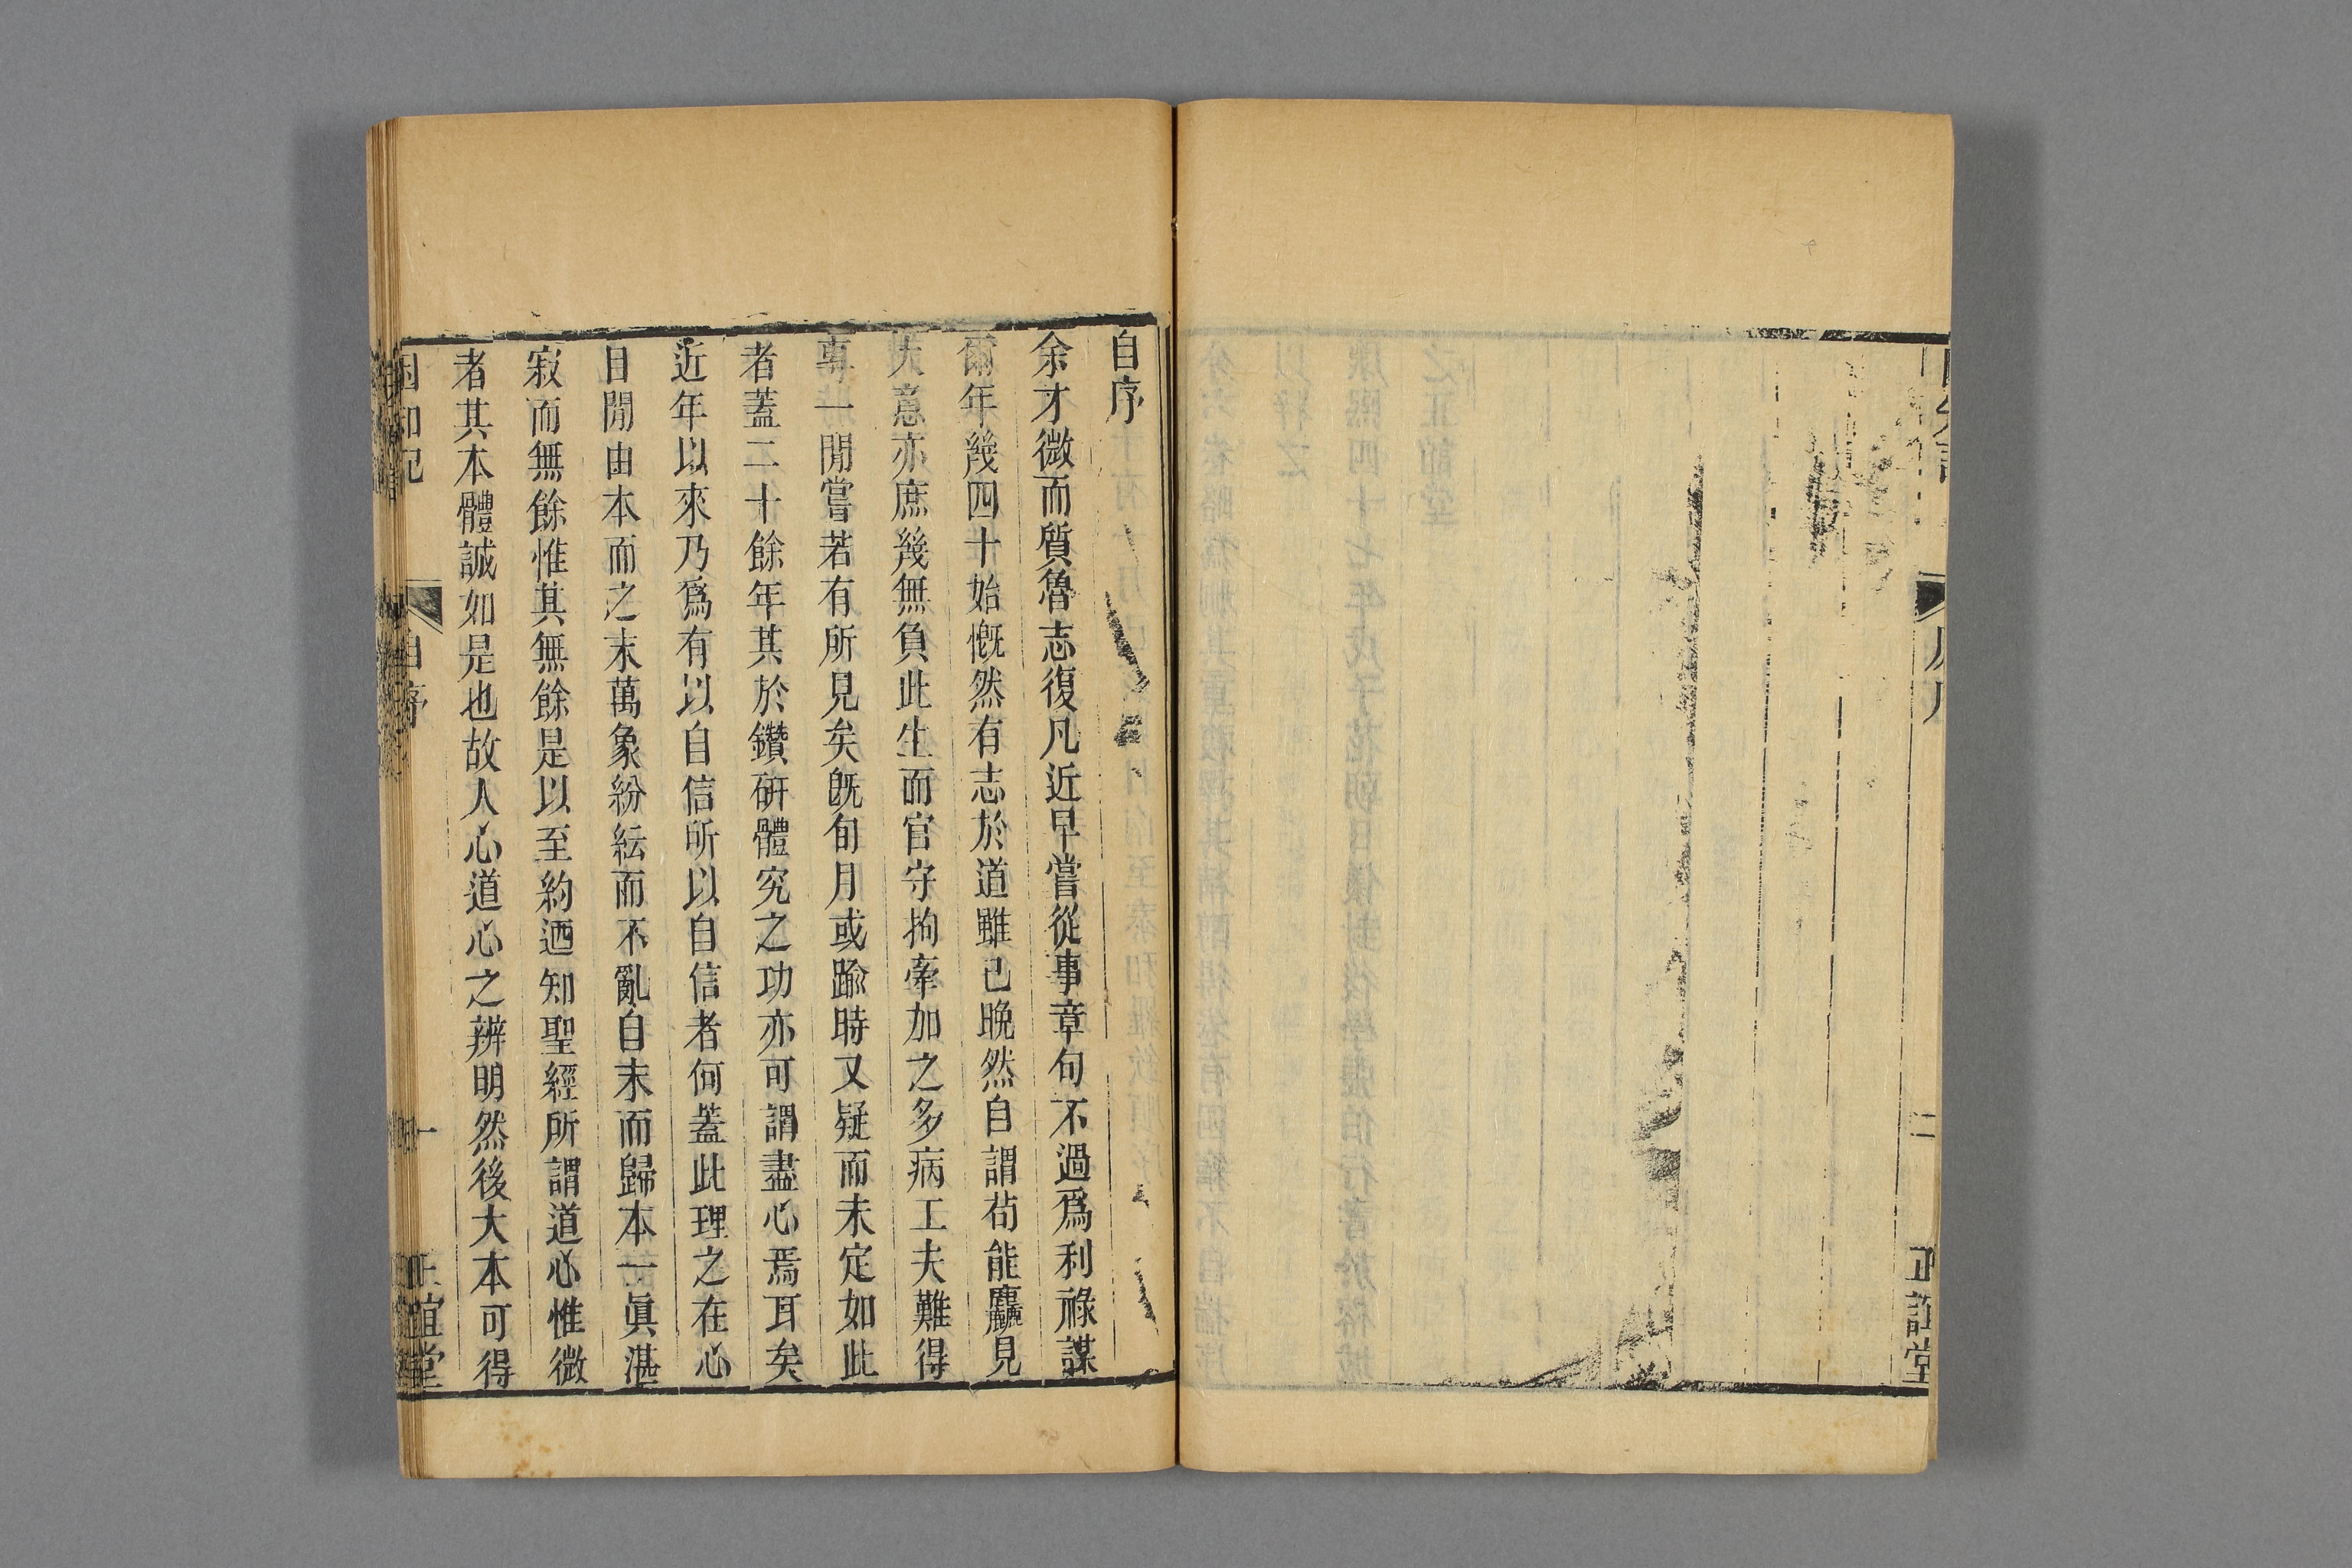 正誼堂
自序
余才微而質魯志復凡近早嘗從事章句不過爲利祿謀
爾年幾四十始慨然有志於道雖已晚然自謂苟能麤見
大意亦庶幾無負此生而官守拘牽加之多病工夫難得
專一閒嘗若有所見矣既旬月或踰時又疑而未定如此
者蓋二十餘年其於鑽研體究之功亦可謂盡心焉耳矣
近年以來乃爲有以自信所以自信者何蓋此理之在心
目閒由本而之末萬象紛紜而不亂自末而歸本一眞湛
寂而無餘惟其無餘是以至約迺知聖經所謂道心惟微
者其本體誠如是也故人心道心之辨明然後大本可得
困知記 自序 一 正誼堂